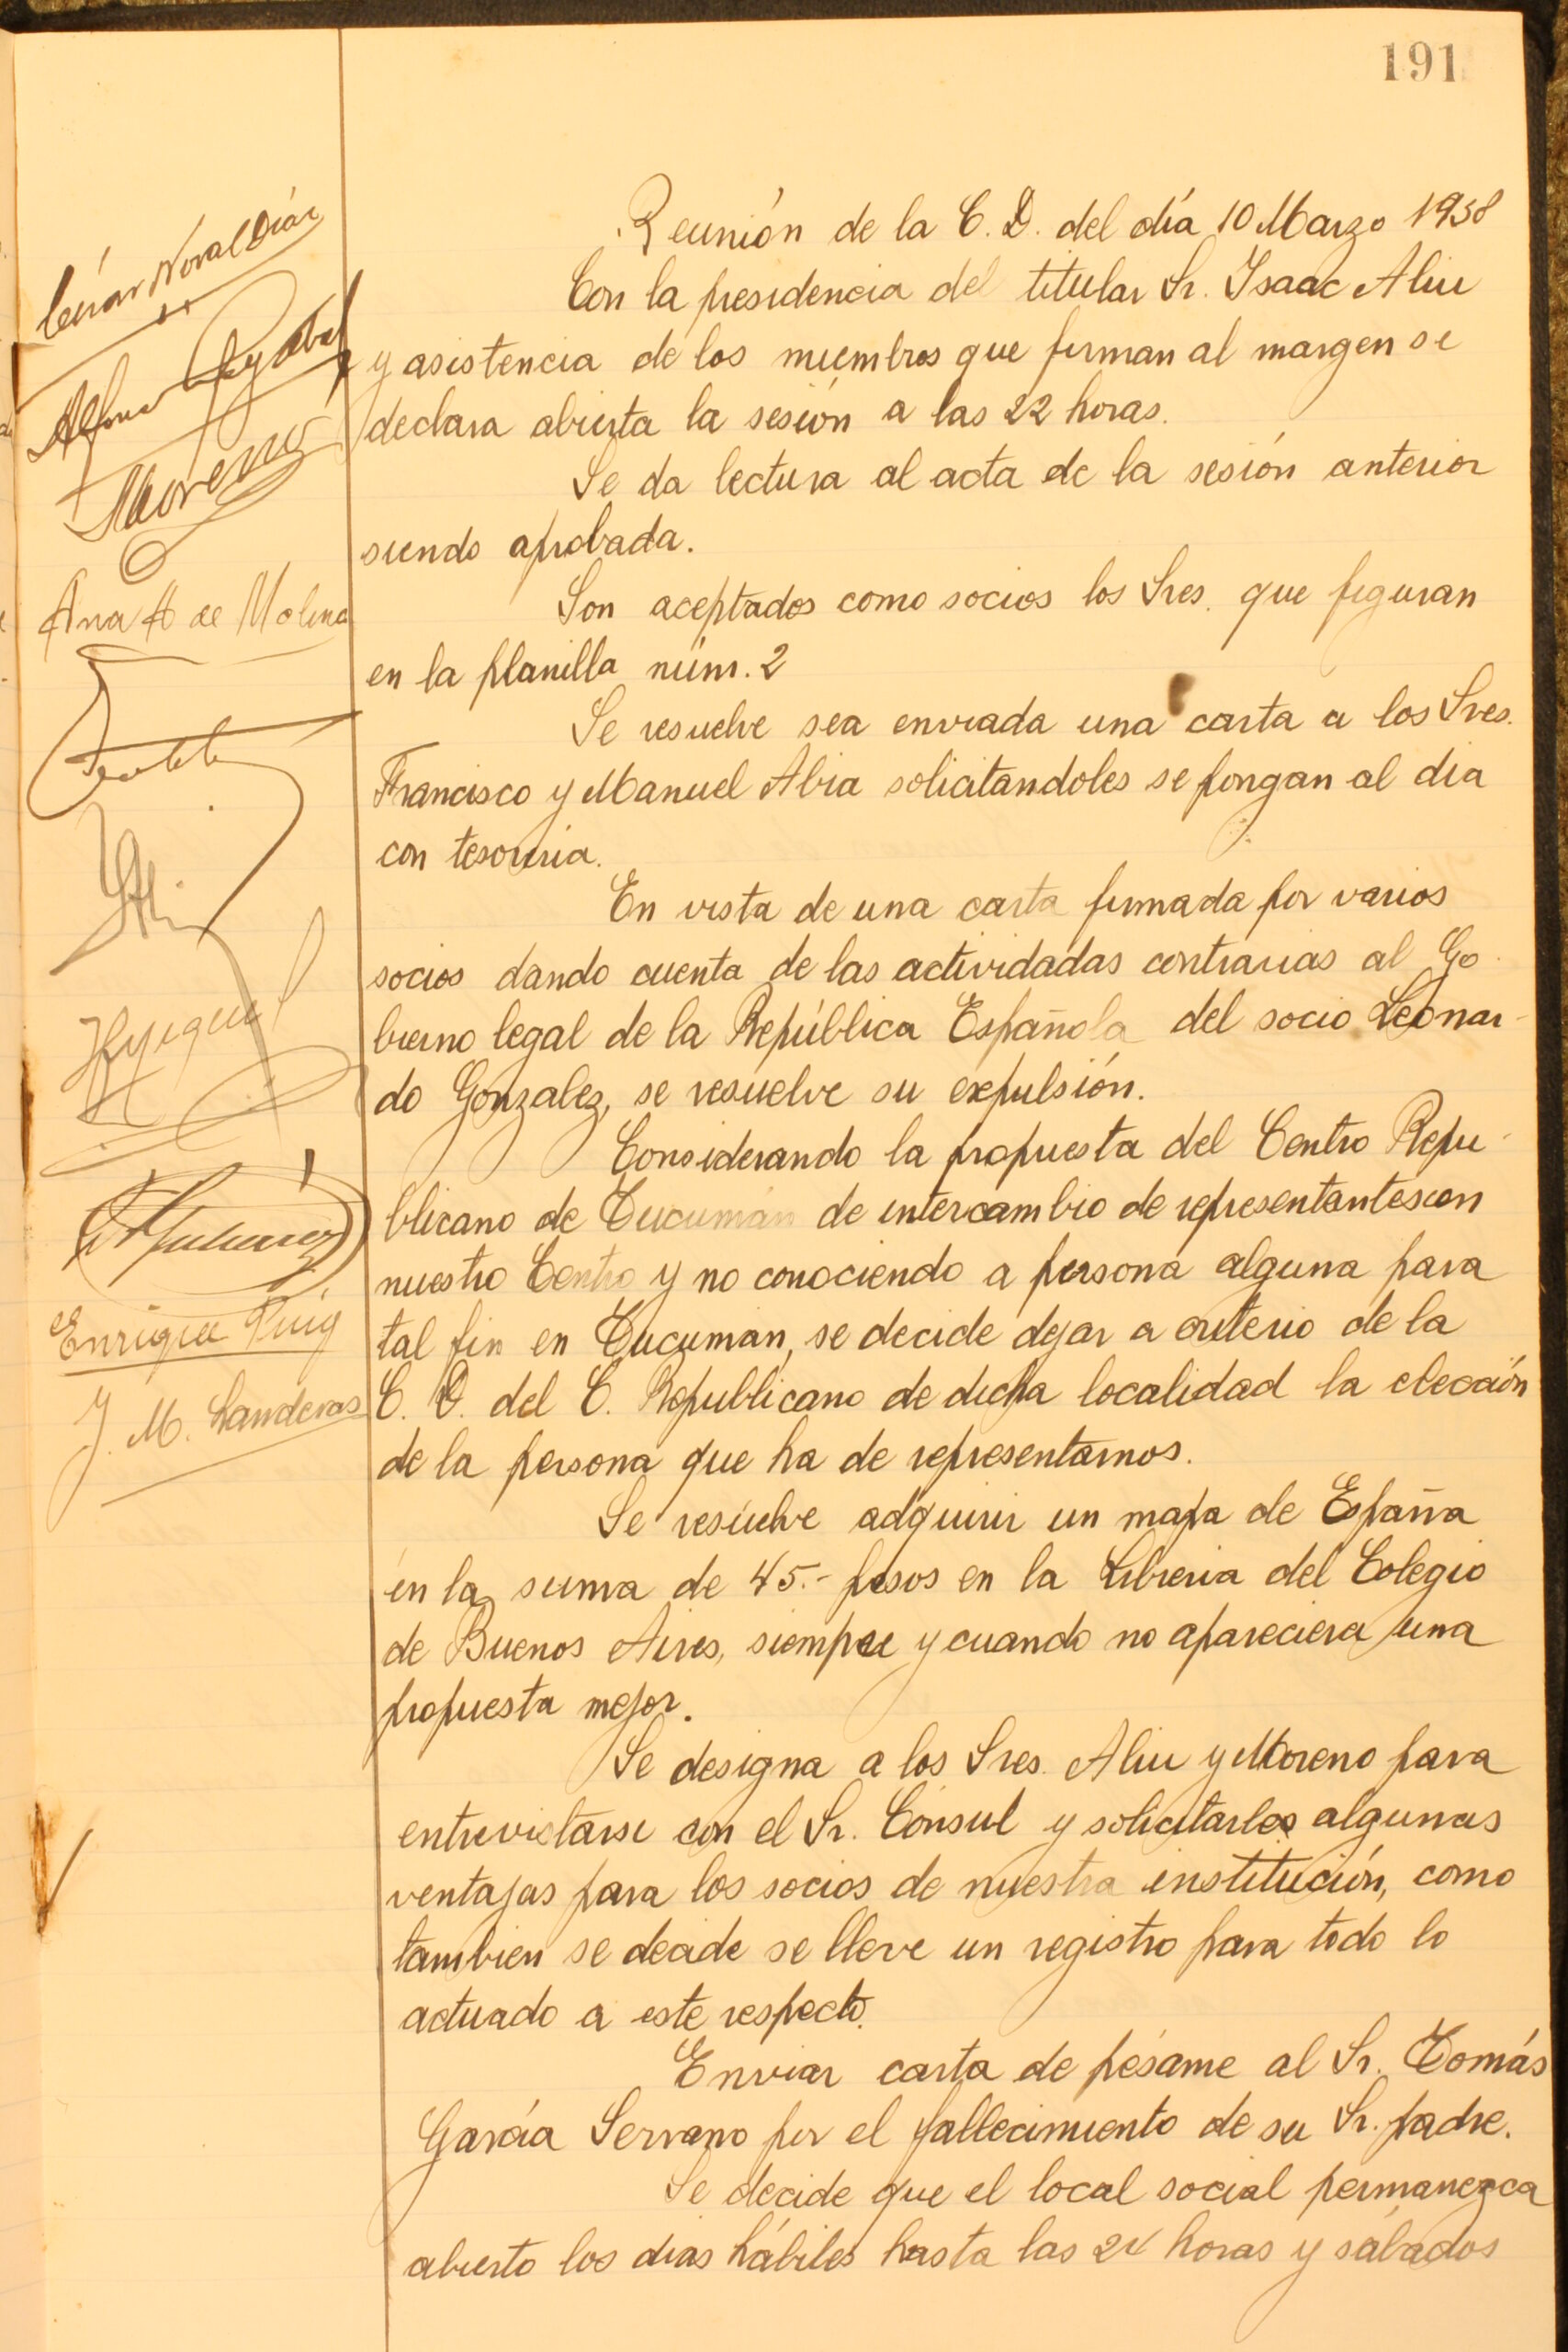 191
Reunión de la C. D. del día 10 Marzo 1938
Con la presidencia del titular Sr. Isaac Aliu
y asistencia de los miembros que firman al margen se
declara abierta la sesión a las 22 horas.
Se da lectura al acta de la sesión anterior
siendo aprobada.
Son aceptados como socios los Sres. que figuran
en la planilla núm. 2
Se resuelve sea enviada una carta a los Sres.
Francisco y Manuel Abia solicitandoles se pongan al dia
con tesoreria.
En vista de una carta firmada por varios
socios dando cuenta de las actividadas contrarias al Go-
bierno legal de la República Española del socio Leonar-
do Gonzalez, se resuelve su expulsión.
Considerando la propuesta del Centro Repu-
blicano de Tucuman de intercambio de representantes con
nuestro Centro y no conociendo a persona alguna para
tal fin en Tucuman, se decide dejar a criterio de la
C. D. del C. Republicano de dicha localidad la elección
de la persona que ha de representarnos.
Se resuelve adquirir un mapa de España
en la suma de 45.- pesos en la Libreria del Colegio
de Buenos Aires, siempre y cuando no apareciera una
propuesta mejor.
Se designa a los Sres. Aliu y Moreno para
entrevistarse con el Sr. Cónsul y solicitarles algunas
ventajas para los socios de nuestra institución, como
tambien se decide se lleve un registro para todo lo
actuado a este respecto.
Enviar carta de pésame al Sr. Tomás
García Serrano por el fallecimiento de su Sr. padre.
Se decide que el local social permanezca
abierto los dias hábiles hasta las 24 horas y sábados
César Noval Díaz
Moreno
Ana A de Molina
Enrique Puig
J. M. Landeras